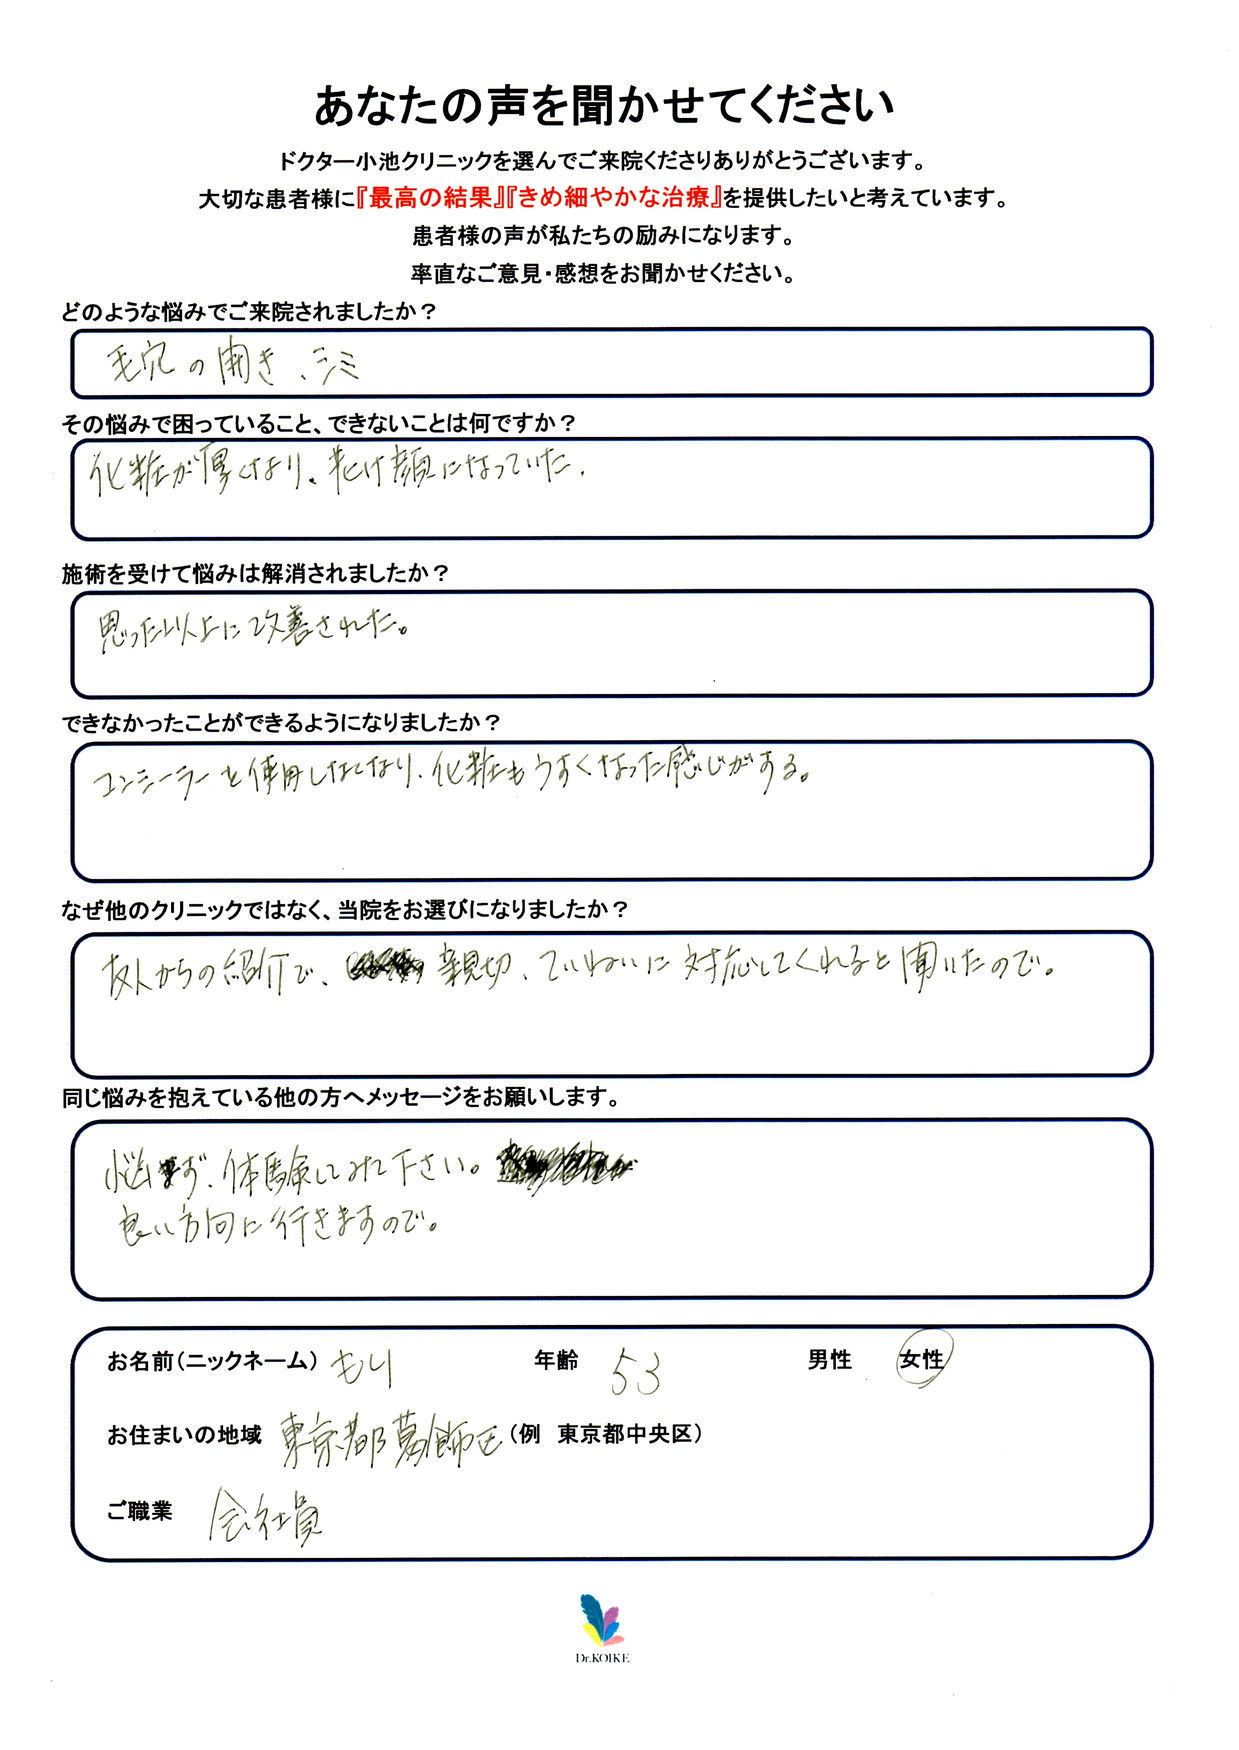 あなたの声を聞かせてください
ドクター小池クリニックを選んでご来院くださりありがとうございます。
大切な患者様に『最高の結果』『きめ細やかな治療』を提供したいと考えています。
患者様の声が私たちの励みになります。
率直なご意見・感想をお聞かせください。
どのような悩みでご来院されましたか？
毛穴の開き、シミ
その悩みで困っていること、できないことは何ですか？
化粧が厚くなり、老け顔になっていた．
施術を受けて悩みは解消されましたか？
思った以上に改善された。
できなかったことができるようになりましたか？
コンシーラーを使用しなくなり、化粧もうすくなった感じがする。
なぜ他のクリニックではなく、当院をお選びになりましたか？
友人からの紹介で、親切、ていねいに対応してくれると聞いたので。
同じ悩みを抱えている他の方へメッセージをお願いします。
悩まず、体験してみて下さい。
良い方向に行きますので。
お名前（ニックネーム） もり 年齢 53 男性 女性
お住まいの地域 東京都葛飾区（例 東京都中央区）
ご職業 会社員
Dr.KOIKE